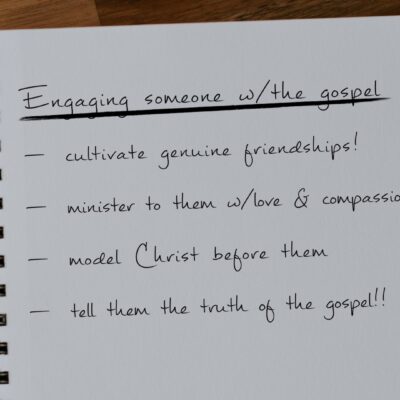 Engaging someone w/the gospel
— cultivate genuine friendships!
— minister to them w/love & compassio
— model Christ before them
— tell them the truth of the gospel!!